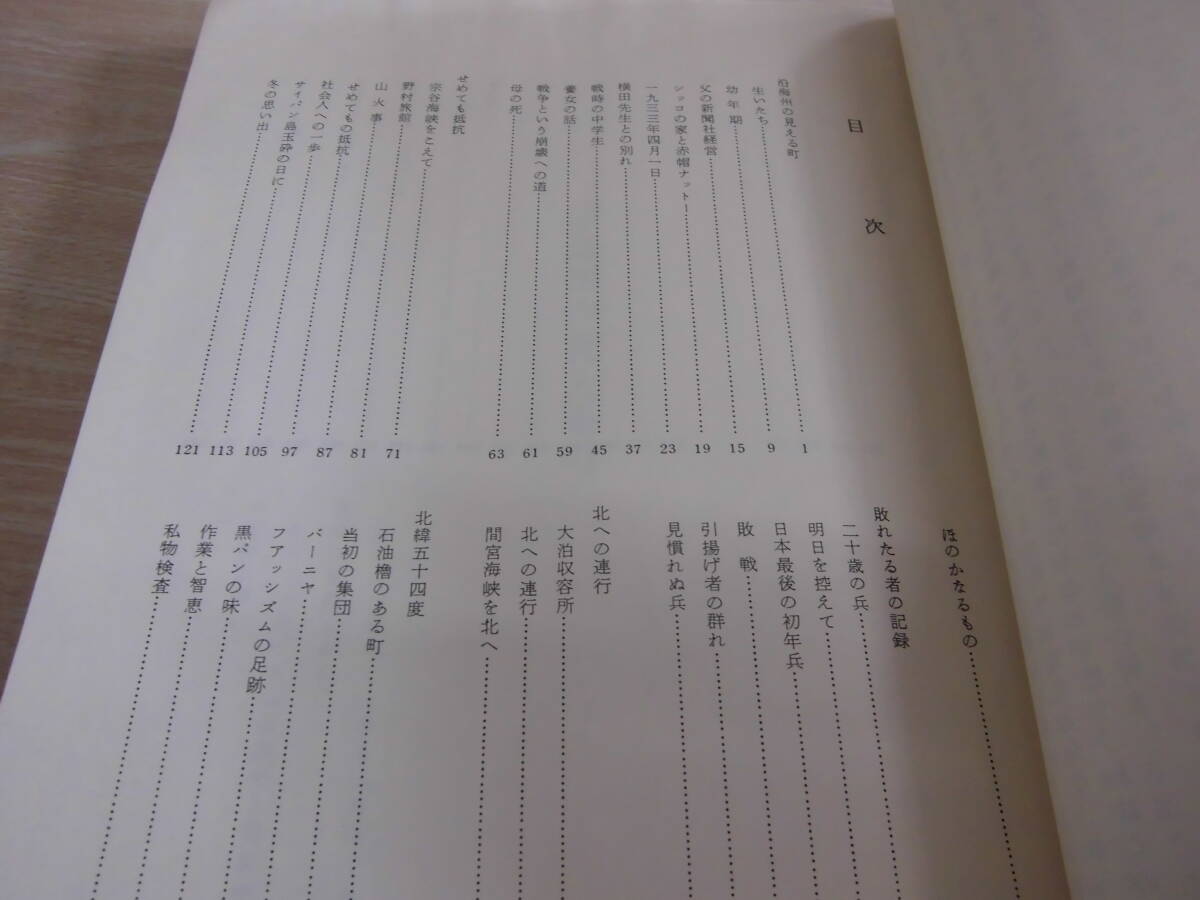 目次
沿海州の見える町
生いたち 1
幼年期 9
父の新聞社経営 15
シッコの家と赤帽ナットー 19
一九三三年四月一日 23
横田先生との別れ 37
戦時の中学生 45
養女の話 59
戦争という崩壊への道 61
母の死 63
せめても抵抗
宗谷海峡をこえて 71
野村旅館 81
山火事 87
せめてもの抵抗 97
社会人への一歩 105
サイパン島玉砕の日に 113
冬の思い出 121
ほのかなるもの
敗れたる者の記録
二十歳の兵
明日を控えて
日本最後の初年兵
敗戦
引揚げ者の群れ
見慣れぬ兵
北への連行
大泊収容所
北への連行
間宮海峡を北へ
北緯五十四度
石油櫓のある町
当初の集団
バーニヤ
フアッシズムの足跡
黒パンの味
作業と智恵
私物検査